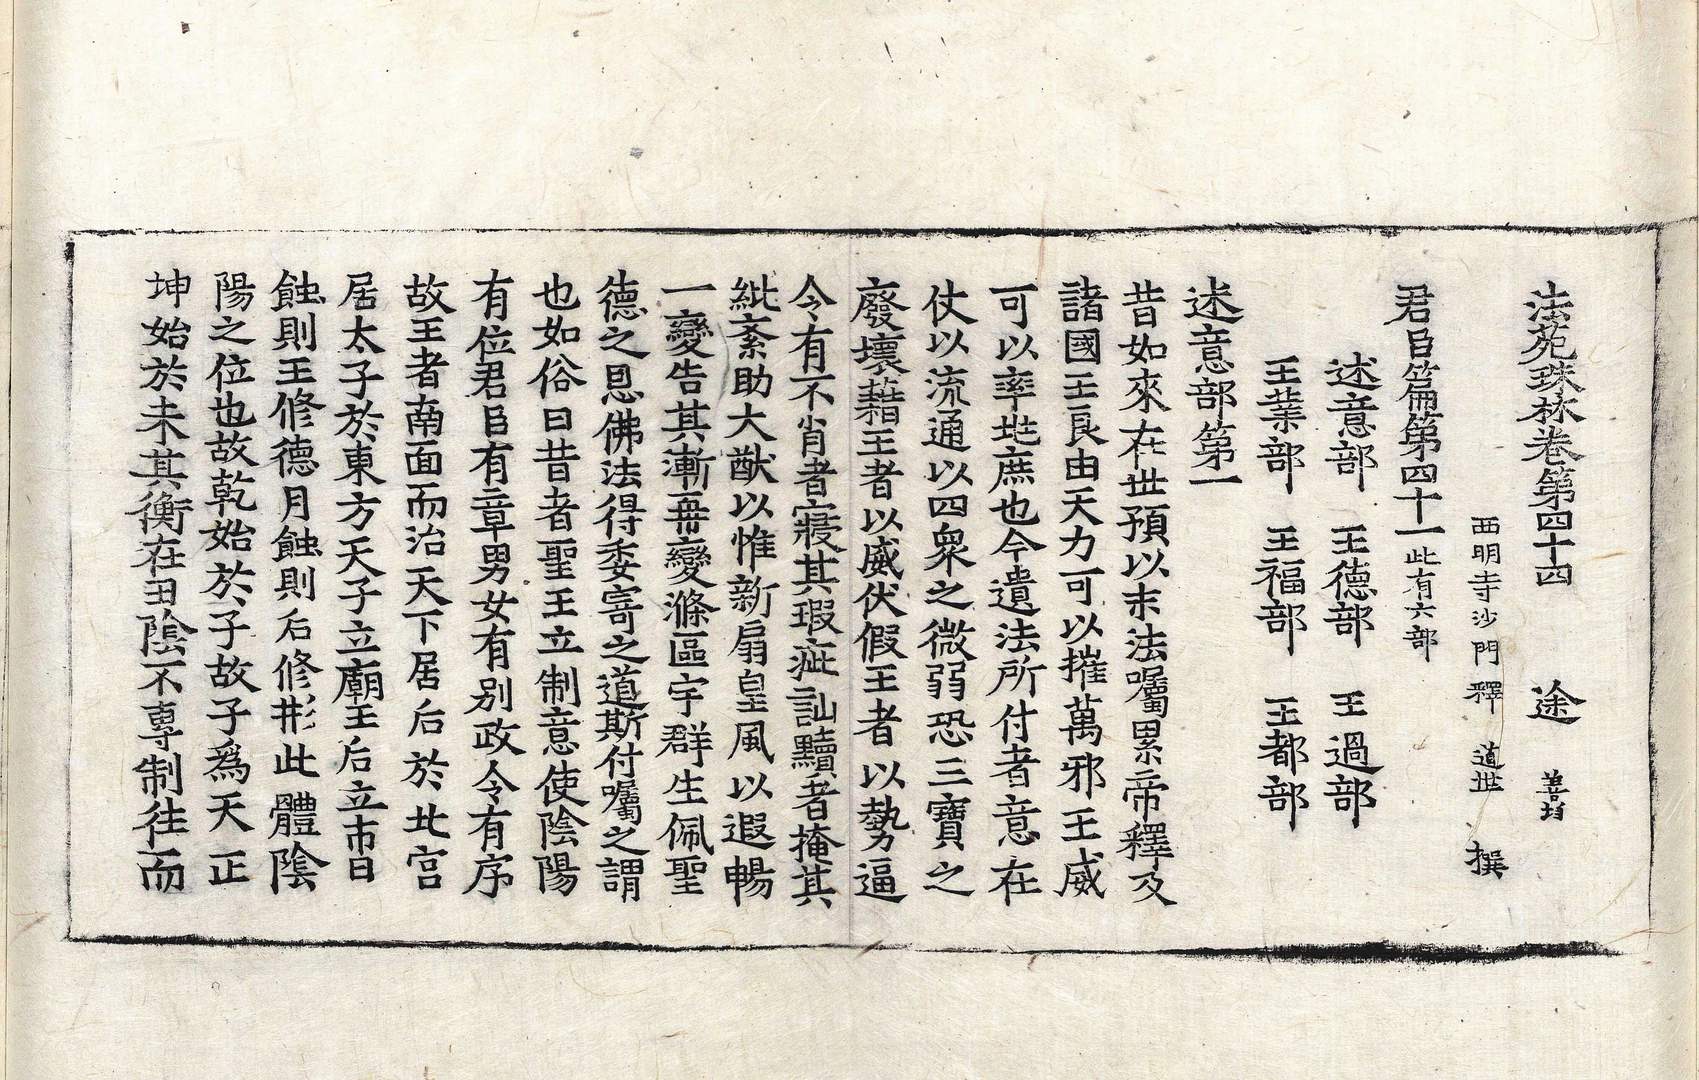 法苑珠林卷第四十四 途 善均
西明寺沙門釋 道世 撰
君臣篇第四十一此有六部
述意部 王德部 王過部
王業部 王福部 王都部
述意部第一
昔如來在世預以末法囑累帝釋及
諸國王良由天力可以摧萬邪王威
可以率㘴庶也今遺法所付者意在
仗以流通以四衆之微弱恐三寶之
廢壞藉王者以威伏假王者以勢逼
令有不肖者寢其瑕疵訕黷者掩其
紕紊助大猷以惟新扇皇風以遐暢
一變告其漸再變滌區宇群生佩聖
德之恩佛法得委寄之道斯付囑之謂
也如俗曰昔者聖王立制意使陰陽
有位君臣有章男女有別政令有序
故王者南面而治天下居后於北宮
居太子於東方天子立廟王后立市日
蝕則王修德月蝕則后修形此體陰
陽之位也故乾始於子故子爲天正
坤始於未其衡在丑陰不專制往而